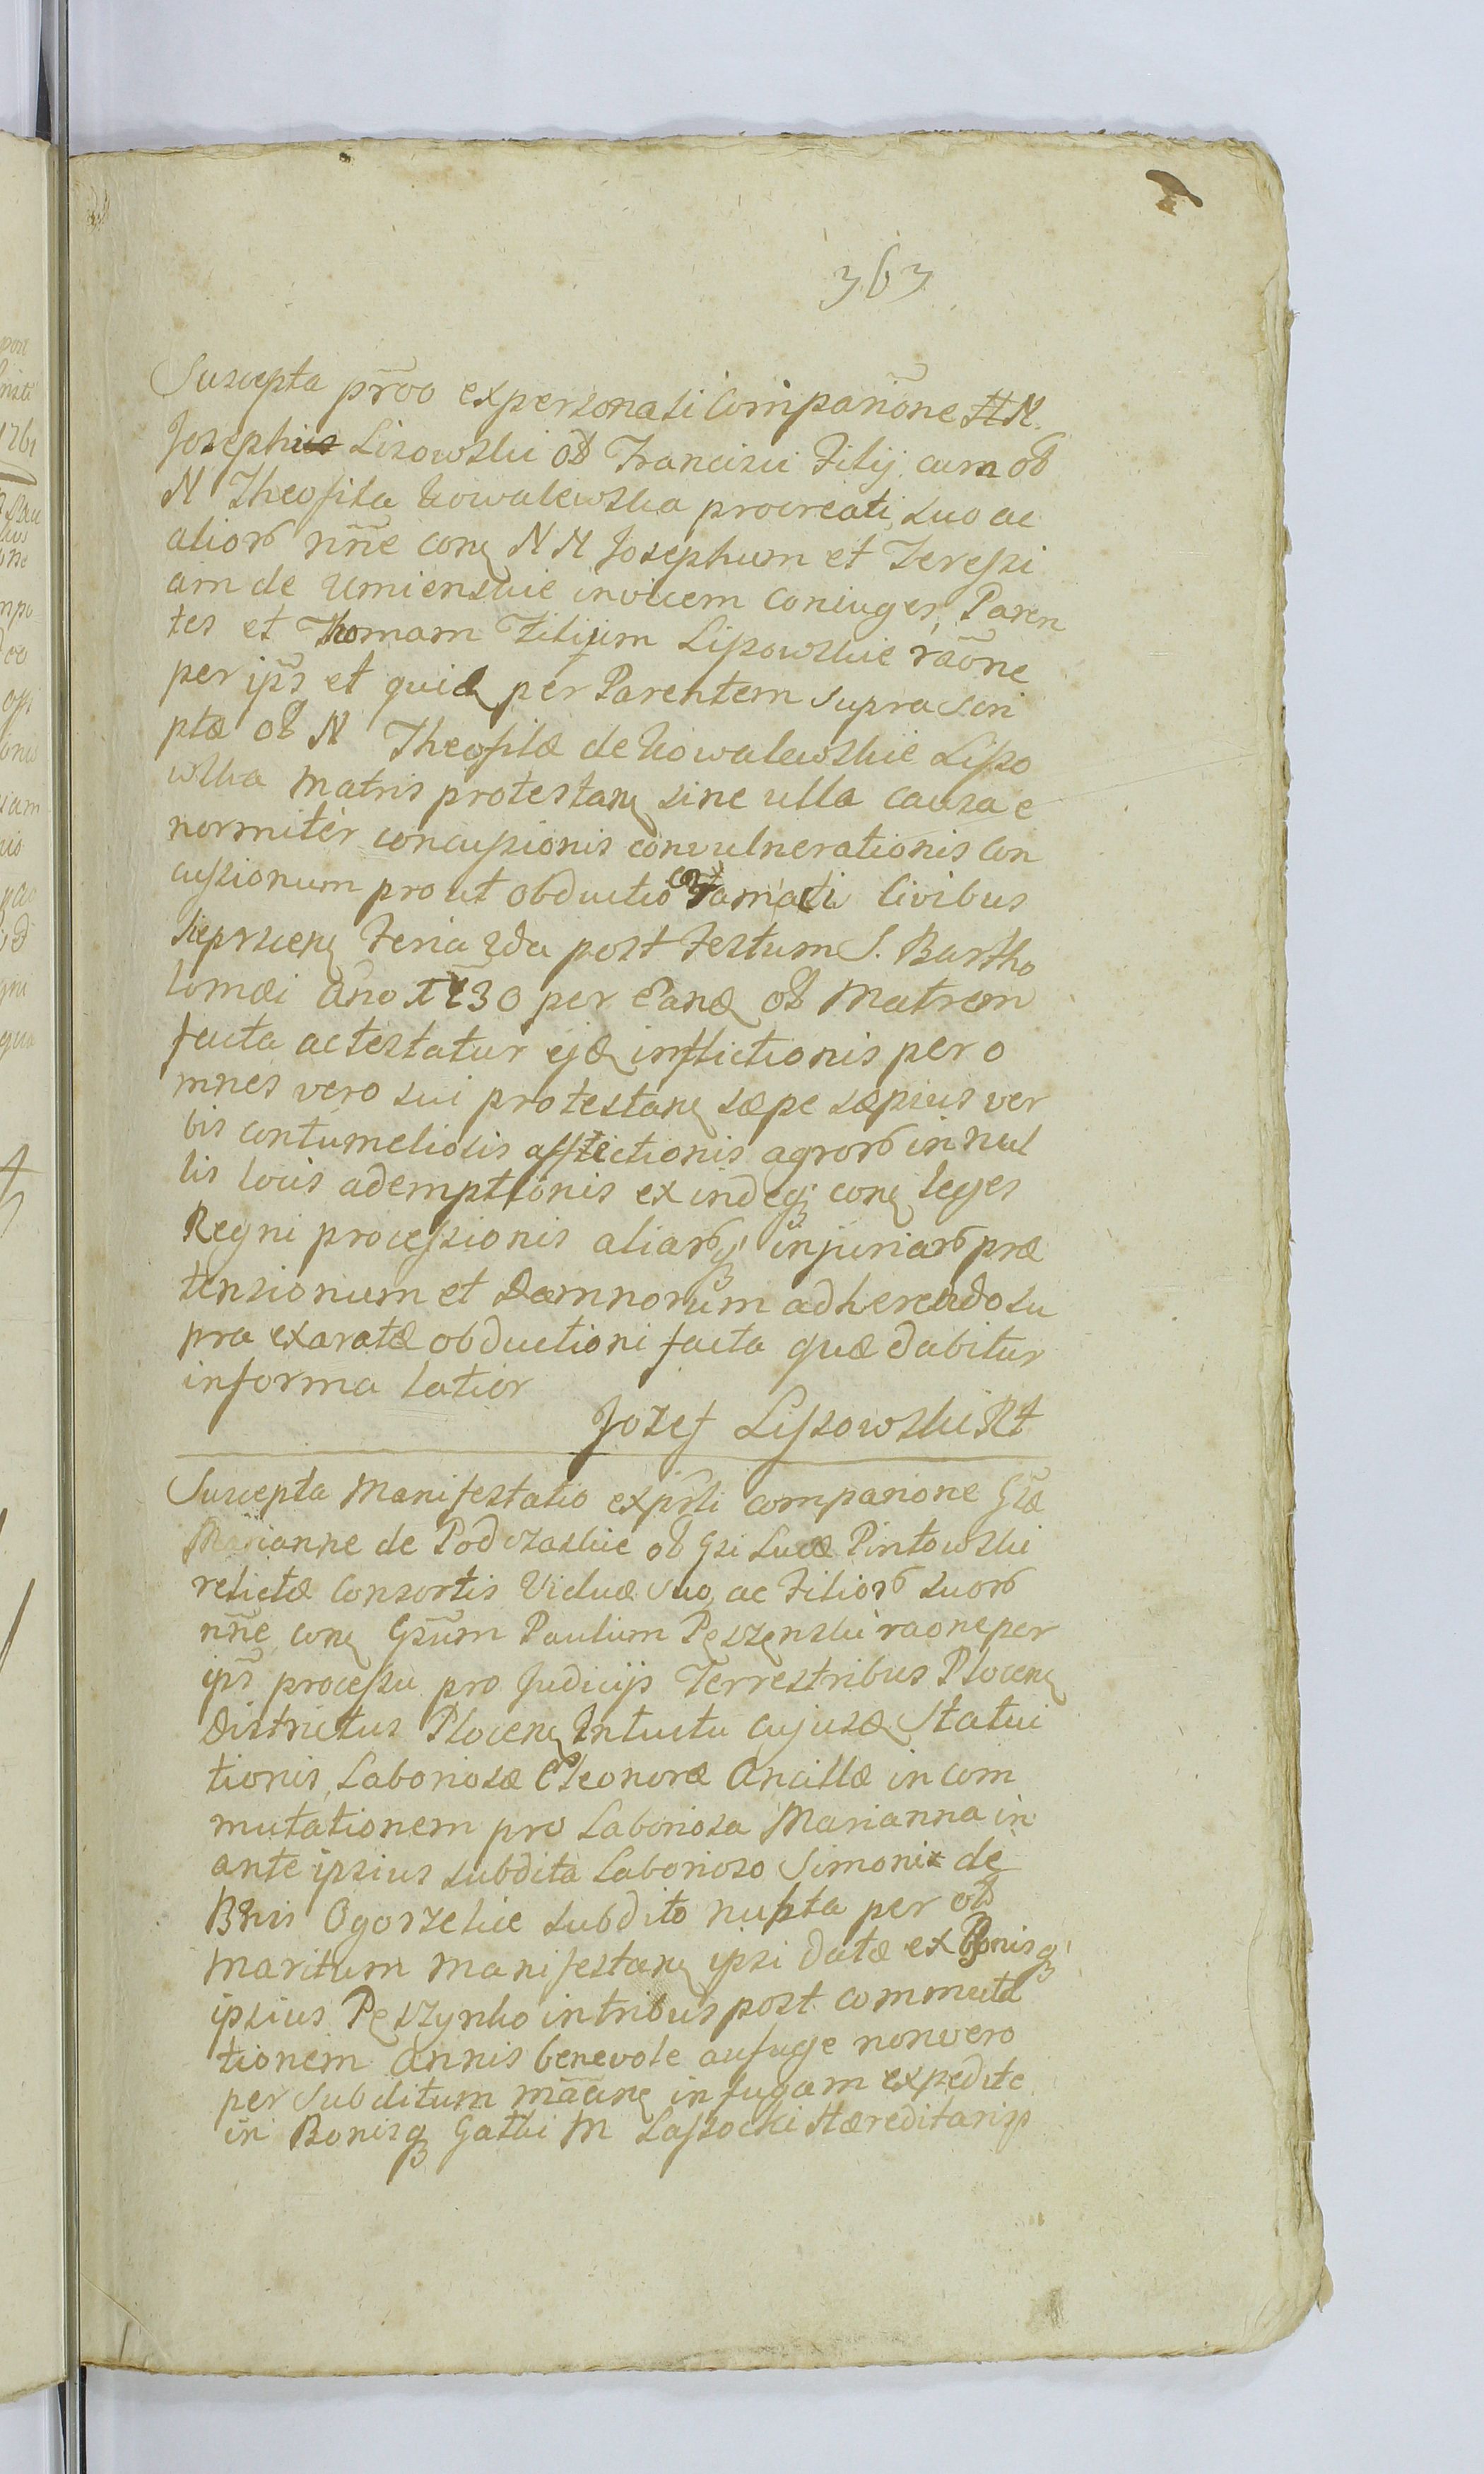 363
Suscepta pr̃oo ex personali Comparõne N.
Joseph Lisowski oB Francisci Filij cum oB
N Theofila Kowalewska procreati, suo ac
alior nñe con NN Josephum et Teressi
am de Umienskie invicem coniuges, Paren
tes et Thomam Filium Lissowskie rãone
per ip̃s et quid per Parentem supra scri
ptæ oB N Theofilæ de Kowalewskie Lisso
wska Matris protestan sine ulla causa e
normitèr concussionis convulnerationis con
cussionum prout obductio livibus
Sieprscen Feria 2da post Festum S. Bartho
lomæi Año 30 per oB Matrem
facta actestatur ejd inflictionis per o
mnes vero sui protestan sæpe sæpius ver
bis contumeliosis afflictionis agror in nul
lis locis ademptionis exindeq con leges
Regni processionis aliarq injuriar præ
tensionum et Damnorum adherendo su
pra exaratæ obductioni facta quæ dabitur
in forma latior
Jozef Lissowski
Suscepta Manifestatio ex pr̃li comparione Gsæ
Marianne de Podczaskie oB Gsi Lucæ Pintowski
relictæ Consortis Viduæ suo, ac Filior suor
nñe con Gsũm Paulum Pęszęnski raone per
ip̃s processu pro Judicijs Terrestribus Plocen
Districtus Plocen Intuitu cujusd Statui
tionis, Laboriosæ Eleonoræ Ancillæ in com
mutationem pro Laboriosa Marianna in
ante ipsius subdita Laborioso Simoni de
Bnis Ogorzelice subdito nupta per oB
maritum manifestan ipsi datæ ex Bonisq
ipsius Pęszynko in tribus post commuta
tionem Annis benevole aufuge non vero
per subditum mãan in fugam expedite
in Bonisq Gatki M Lassocki Hæreditarijs